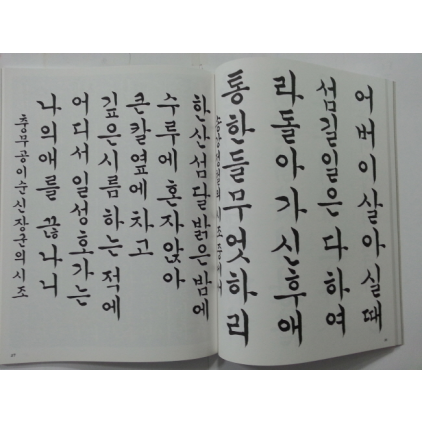 어버이살아실때
섬길일은다하여
라돌아가신후애
통한들무엇하리
시조중에서
한산섬달밝은밤에
수루에혼자앉아
큰칼옆에차고
깊은시름하는적에
어디서일성호가는
나의애를끊나니
충무공이순신장군의시조
27